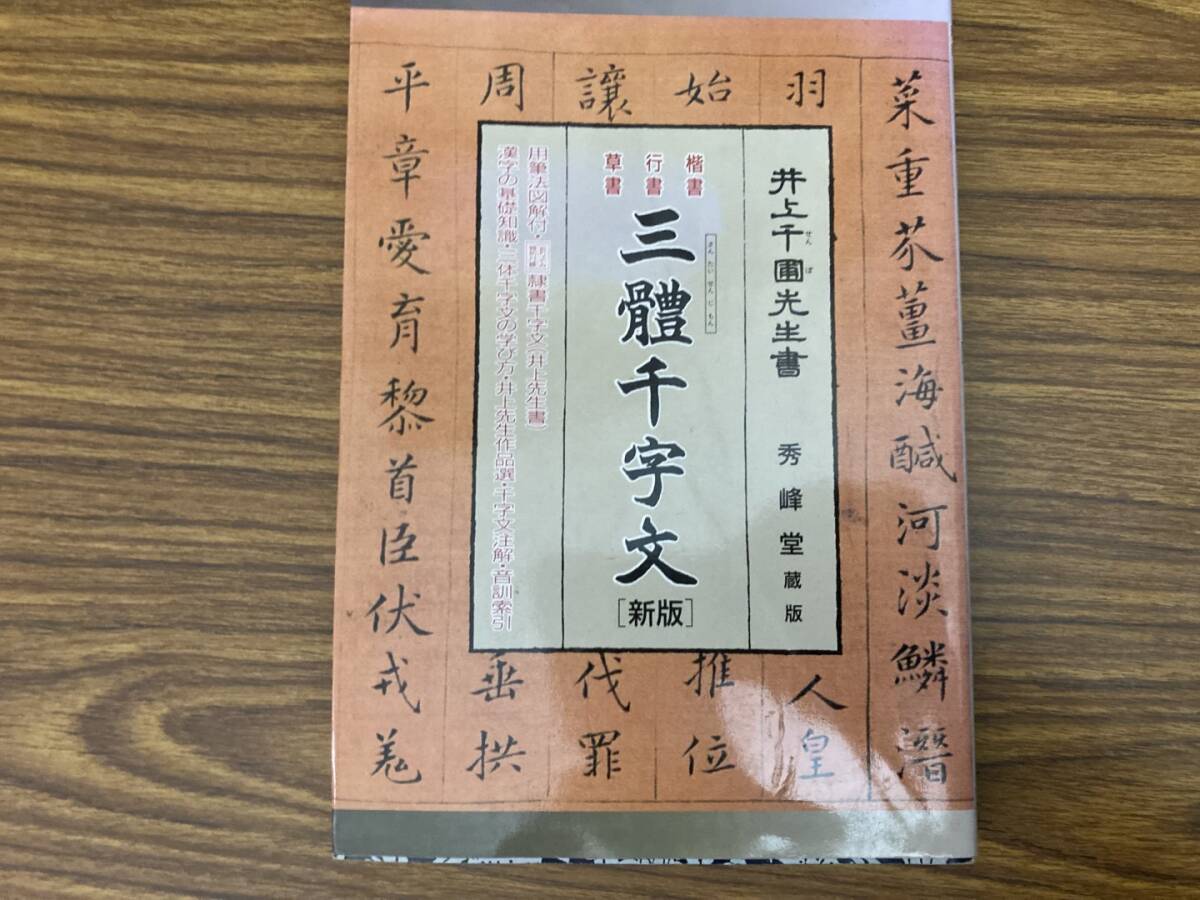 菜重芥薑海醎河淡鱗潛
羽
人皇
始
推位
讓
伐罪
周
垂拱
平章愛育黎首臣伏戎羌
井上千圃先生書
せんぽ
秀峰堂蔵版
楷書
行書
草書
さんたいせんじもん
三體千字文
[新版]
用筆法図解付・隷書千字文(井上先生書)
漢字の基礎知識・三体千字文の学び方・井上先生作品選・千字文注解・音訓索引